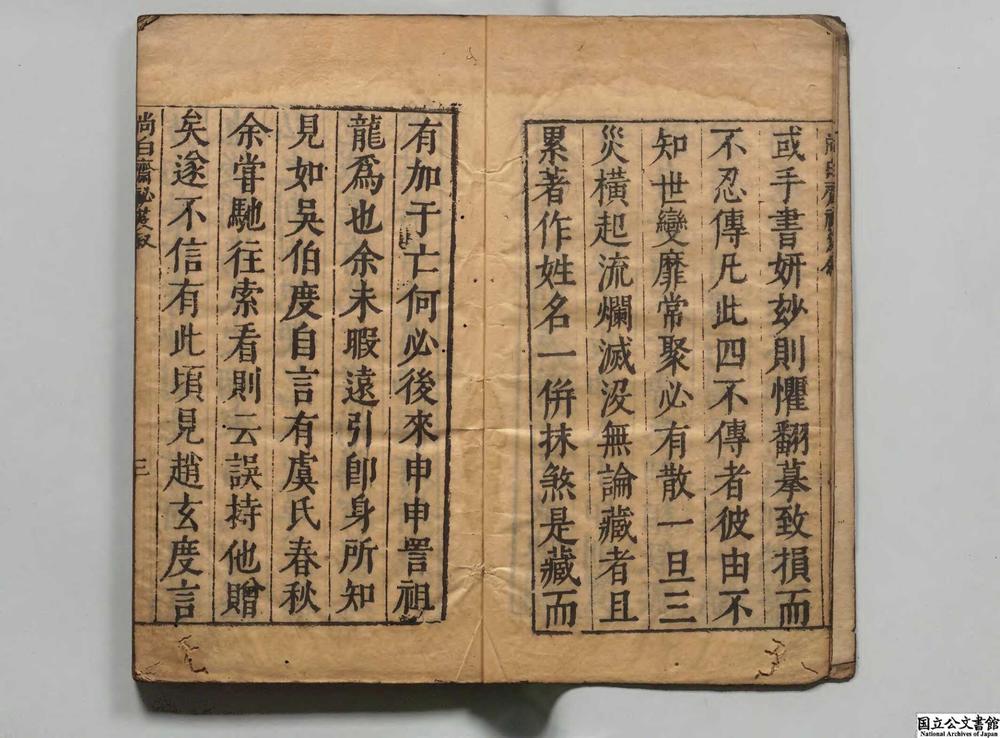 或手書妍玅則懼翻摹致損而
不忍傳凡此四不傳者彼由不
知世變靡常聚必有散一旦三
災橫起流爛滅沒無論藏者且
累著作姓名一併抹煞是藏而
有加于亡何必後來申申詈祖
龍為也余未暇遠引卽身所知
見如吳伯度自言有虞氏春秋
余甞馳往索看則云誤持他贈
矣遂不信有此頃見趙玄度言
尚白齋秘笈叙
三
国立公文書館
National Archives of Japan